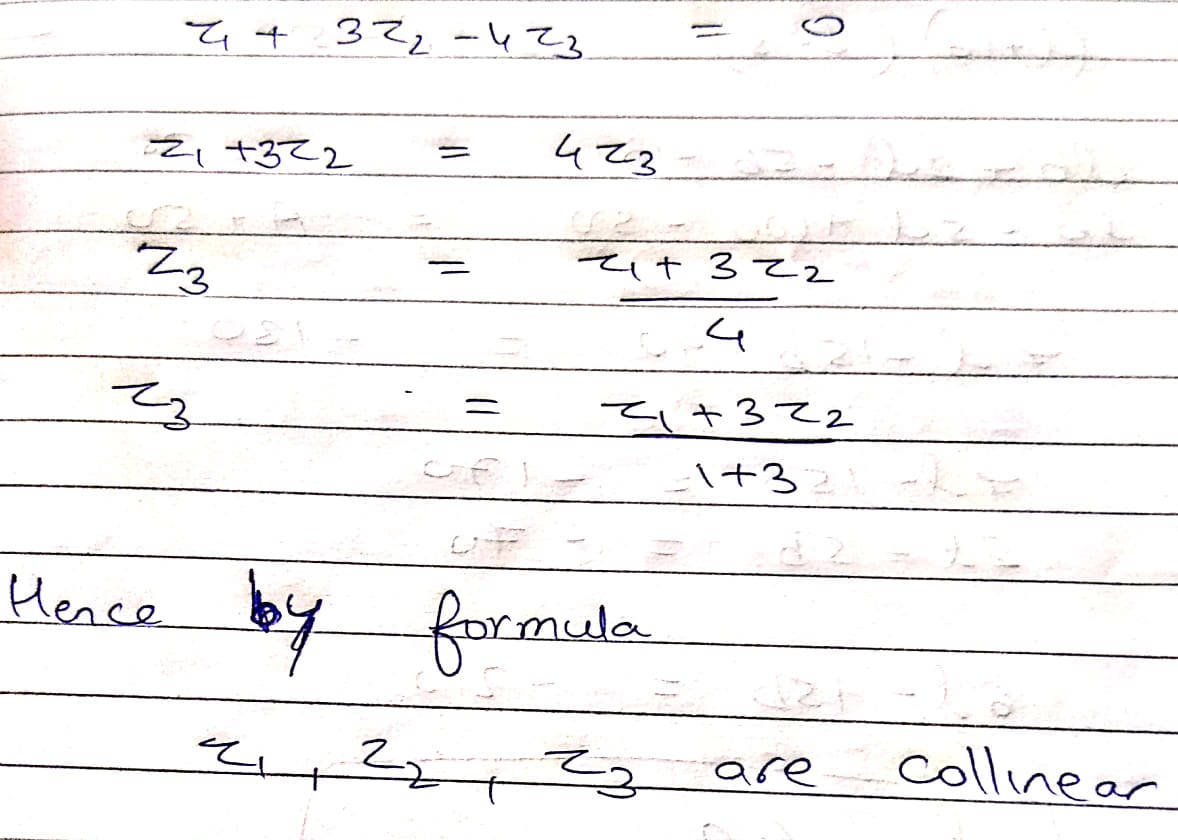 z₁ + 3z₂ - 4z₃ = 0
z₁ + 3z₂ = 4z₃
z₃ = z₁ + 3z₂
4
z₃ = z₁ + 3z₂
1+3
Hence by formula
z₁, z₂, z₃ are collinear